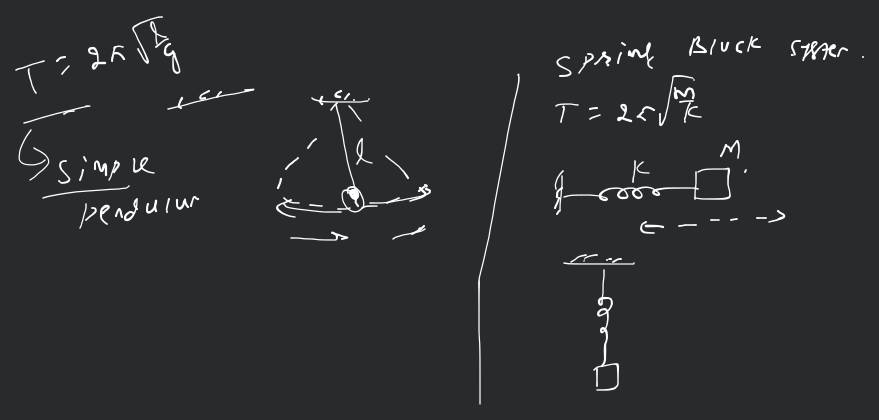 T = 2π√l/g
simple
pendulum
l
Spring Block system.
T = 2π√m/k
M.
K